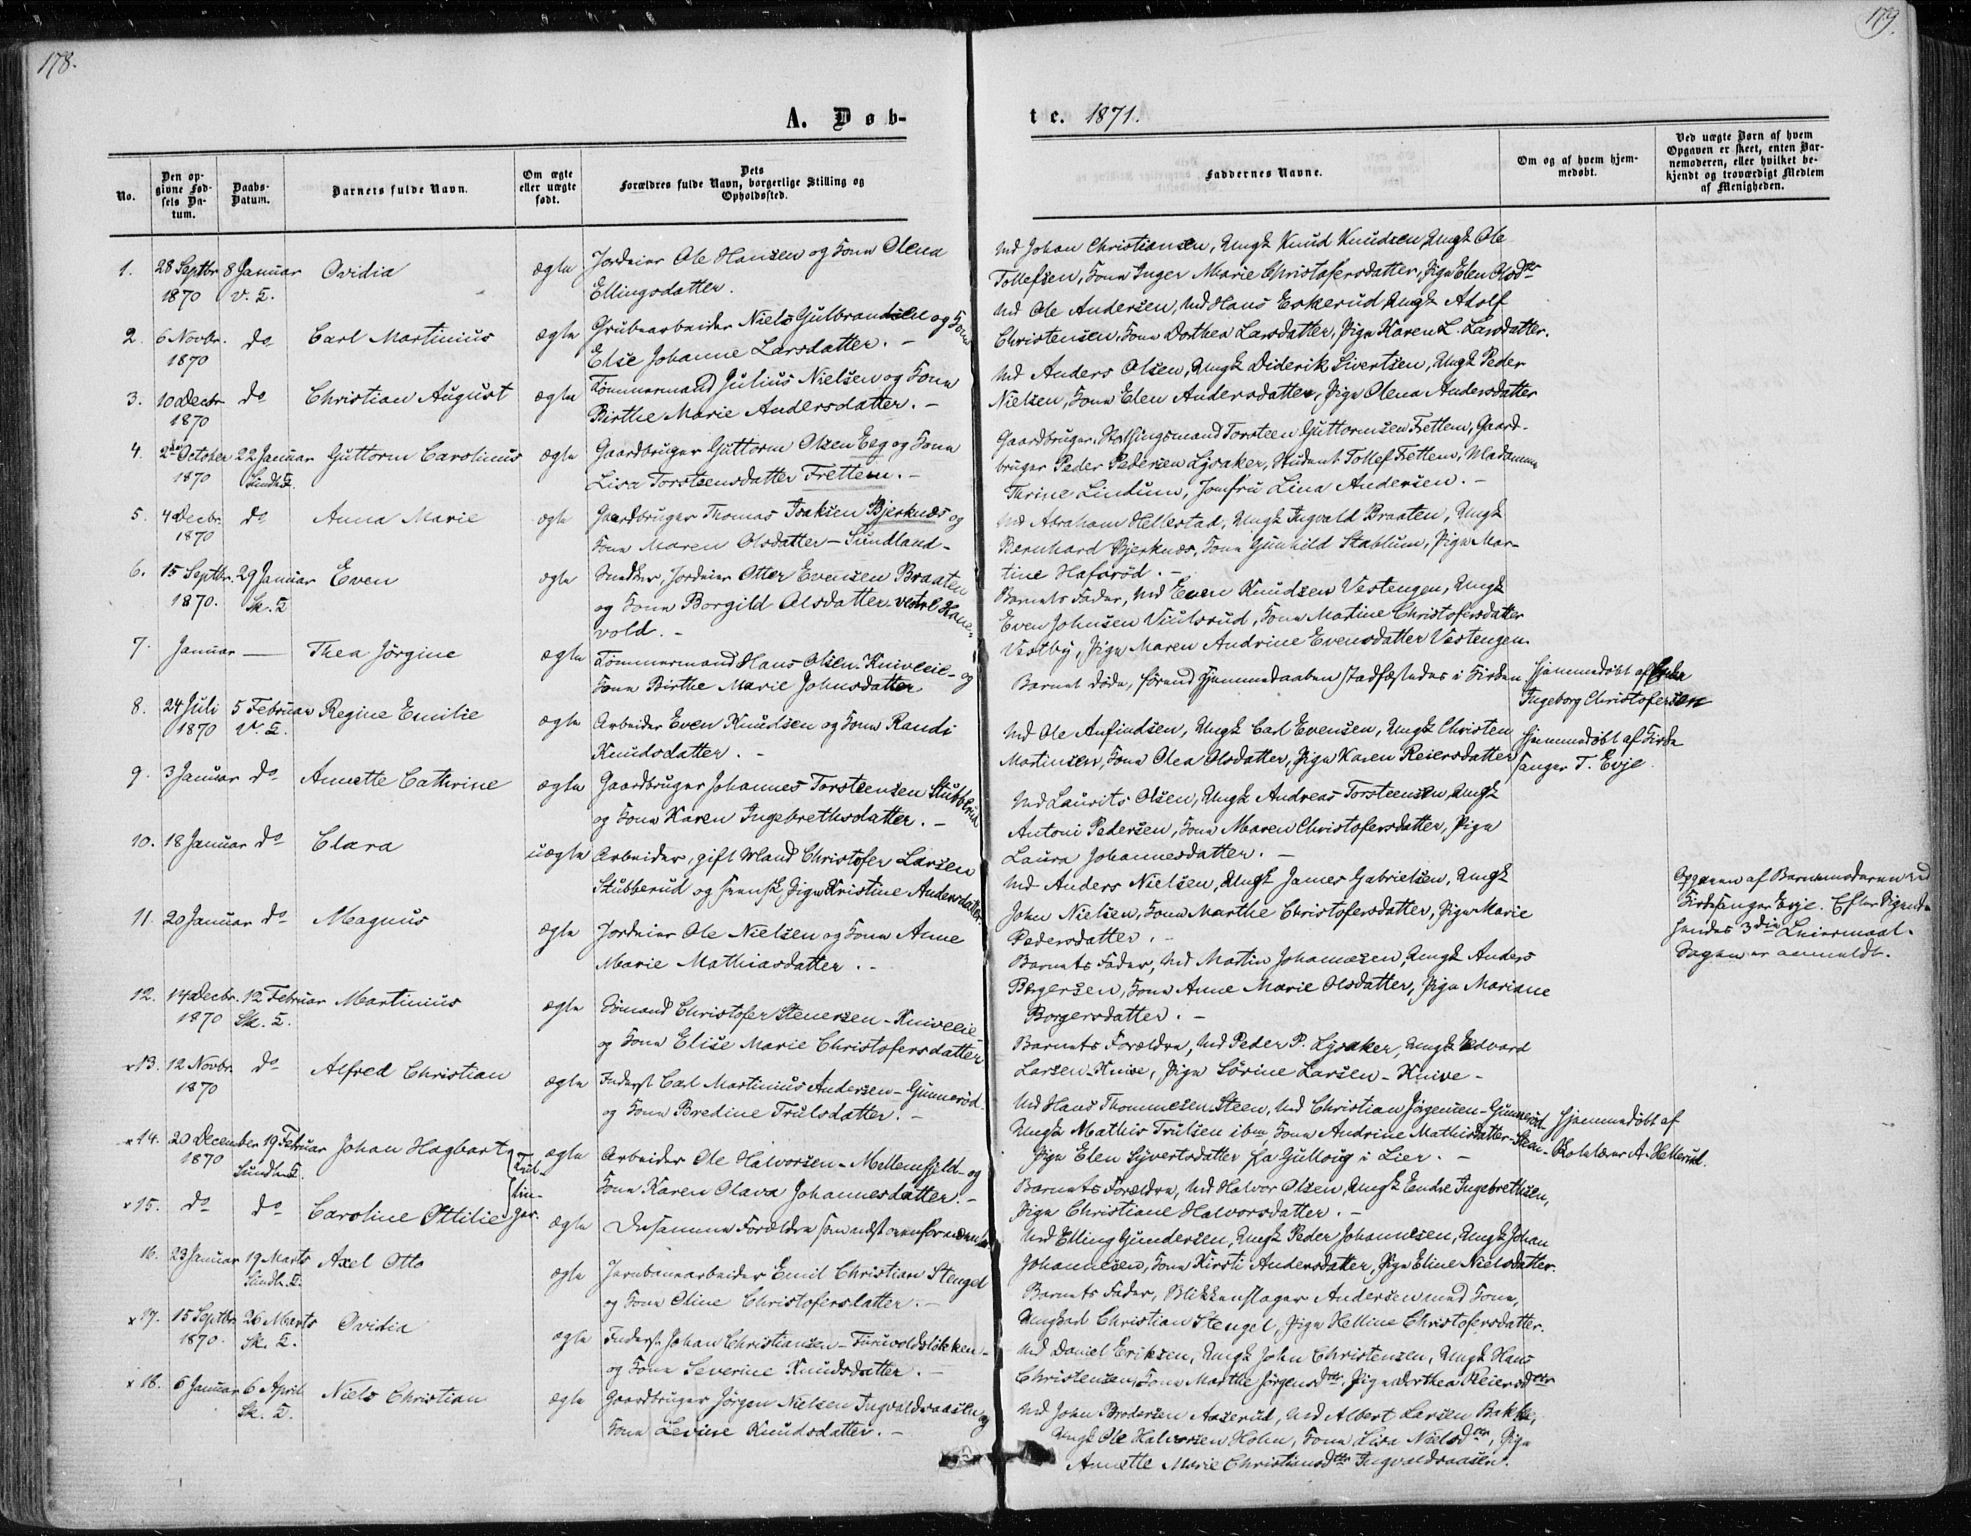 178.
A. Døb-
No.
Den op-
givne Fød-
sels Da-
tum.
Daabs-
Datum.
Barnets fulde Navn.
Om ægte
eller uægte
født.
Dets
Forældres fulde Navn, borgerlige Stilling og
Opholdssted.
1. 28 Septbr 8 Januar Ovidia ægte Jordeier Ole Hansen og Kone Olena
1870 V. K. Ellingsdatter.
2. 6 Novbr. do Carl Martinius ægte Grubearbeider Niels Gulbrandsen og Kone
1870 Elise Johanne Larsdatter. -
3. 10 Decbr do Christian August ægte Tømmermand Julius Nielsen og Kone
1870 Birthe Marie Andersdatter. -
4. 2den October 22 Januar Guttorm Carolinus ægte Gaardbruger Guttorm Olsen Eeg og Kone
1870 Sundh. K. Lisa Torsteensdatter Frettem. -
5. 4 Decbr. do Anna Marie ægte Gaardbruger Thomas Isaksen Bjerknes og
1870 Kone Maren Olsdatter - Sundland -
6. 15 Septbr. 29 Januar Even ægte Snedker, Jordeier Otter Evensen Braaten
1870. Sk. K og Kone Borgild Olsdatter. vestre Hane-
vold. -
7. Januar — Thea Jörgine ægte Tømmermand Hans Olsen Kniveeie - og
Kone Birthe Marie Johnsdatter
8. 24 Juli 5 Februar Regine Emilie ægte Arbeider Even Knudsen og Kone Randi
1870 V. K. Knudsdatter. -
9. 3 Januar do Annette Cathrine ægte Gaardbruger Johannes Torsteensen Stubberud
og Kone Karen Ingebrethsdatter. -
10. 18 Januar do Clara uægte Arbeider, gift Mand Christofer Larsen
Stubberud og svensk Pige Kristine Andersdatter.
11. 20 Januar do Magnus ægte Jordeier Ole Nielsen og Kone Anne
Marie Mathiasdatter. -
12. 14 Decbr. 12 Februar Martinius ægte Sömand Christofer Stenersen - Kniveeie
1870 Sk. K. og Kone Elise Marie Christofersdatter
x13. 12 Novbr. do Alfred Christian ægte Inderst Carl Martinius Andersen - Gunnerød.
1870 og Kone Bredine Trulsdatter. -
x14. 20 December 19 Februar Johan Hagbart ægte Arbeider Ole Halvorsen - Mellemfjeld - og
1870 Sundh. K. Tvil- Kone Karen Olava Johannesdatter. -
x15. do do Caroline Ottilie lin-ger. ægte De samme Forældre som næst ovenfor nævnte
16. 23 Januar 19 Marts Axel Otto ægte Jernbanearbeider Emil Christian Stengel
Sundh. K. og Kone Oline Christofersdatter. -
x17. 15 Septbr 26 Marts Ovidia ægte Inderst Johan Christiansen - Furuvoldsløkken -
1870. Sk. K. og Kone Severine Knudsdatter. -
x18. 6 Januar 6 April Niels Christian ægte Gaardbruger Jörgen Nielsen Ingvaldsaasen og
Sk. K. Kone Levine Knudsdatter. -
179.
te. 1871.
Faddernes Navne.
Om og af hvem hjem-
medøbt.
Ved uægte Børn af hvem
Opgaven er skeet, enten Bar-
nemoderen, eller hvilket be-
kjendt og troværdigt Medlem
af Menigheden.
Md Johan Christiansen, Ungk Knud Knudsen, Ungk Ole
Tollefsen, Kone Inger Marie Christofersdatter, Pige Elen Olsdtr
Md Ole Andersen, Md Hans Eskerud, Ungk Adolf
Christensen, Kone Dorthea Larsdatter, Pige Karen L. Larsdatter.
Md Anders Olsen, Ungk Diderik Sivertsen, Ungk Peder
Nielsen, Kone Elen Andersdatter, Pige Olena Andersdatter
Gaardbruger, Storthingsmand Torsteen Guttormsen Frettem, Gaard-
bruger Peder Pedersen Lysaker, Student Tollef Frettem, Madamme
Thrine Lindum, Jomfru Lina Andersen. -
Md Abraham Hellestad, Ungk Ingvald Braaten, Ungk
Bernhard Bjerknes, Kone Gunhild Stablum, Pige Mar-
tine Hafarød. -
Barnets Fader, Md Even Knudsen Vestengen, Ungk
Even Johnsen Viulsrud, Kone Matine Christofersdatter
Vestby, Pige Maren Andrine Evensdatter Vestengen.
Barnet døde, førend Hjemmedaaben stadfæstedes i Kirken
Hjemmedøbt af Enke
Ingeborg Christofersen
Md Ole Anfindsen, Ungk Carl Evensen, Ungk Christen
Martinsen, Kone Olea Olsdatter, Pige Karen Reiersdatter
Hjemmedøbt af Kirke
sanger T. Evje.
Md Laurits Olsen, Ungk Andreas Torsteensen, Ungk
Antoni Pedersen, Kone Maren Christofersdatter, Pige
Laura Johannesdatter. -
Md Anders Nielsen, Ungk James Gabrielsen, Ungk
John Nielsen, Kone Marthe Christofersdatter, Pige Marie
Pedersdatter. -
Opgaven af Barnemoderen ved
Kirkesanger Evje. Efter Sigende
hendes 3die Leiermaal.
Sagen er anmeldt.
Barnets Fader, Md Martin Johannesen, Ungk Anders
Borgersen, Kone Anne Marie Olsdatter, Pige Mariane
Borgersdatter. -
Barnets Forældre, Md Peder P. Lysaker, Ungk Edvard
Larsen Knive, Pige Sörine Larsen - Knive -
Md Hans Thommesen Steen, Md Christian Jörgensen - Gunnerød
Ungk Mathis Trulsen ibm, Kone Andrine Mathisdatter - Steen -
Pige Elen Sivertsdatter fra Gullaug i Lier. -
Hjemmedøbt af
Skolelærer A. Hellerud.
Barnets Forældre, Md Halvor Olsen, Ungk Endre Ingebrethsen,
Pige Christiane Halvorsdatter. -
Md Elling Gundersen, Ungk Peder Johannesen, Ungk Johan
Johannesen, Kone Kirsti Andersdatter, Pige Eline Nielsdatter.
Barnets Fader, Blikkenslager Andersen med Kone,
Ungkarl Christian Stengel, Pige Helline Christofersdatter.
Md Daniel Eriksen, Ungk John Christensen, Ungk Hans
Christensen, Kone Marthe Jörgensdtr, Pige Dorthea Reiersdtr
Md John Brodersen Aaserud, Md Albert Larsen Bakke,
Ungk Ole Halvorsen Holm, Kone Lisa Nielsdtr, Pige
Annette Marie Christiansdtr Ingvaldsaasen.